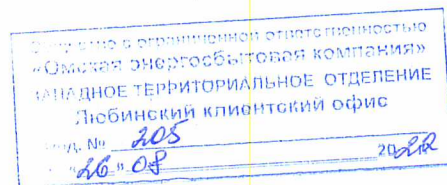 с ограниченной ответственностью
«Омская энергосбытовая компания»
ЗАПАДНОЕ ТЕРРИТОРИАЛЬНОЕ ОТДЕЛЕНИЕ
Любинский клиентский офис
№ 205
"26" 08 2022